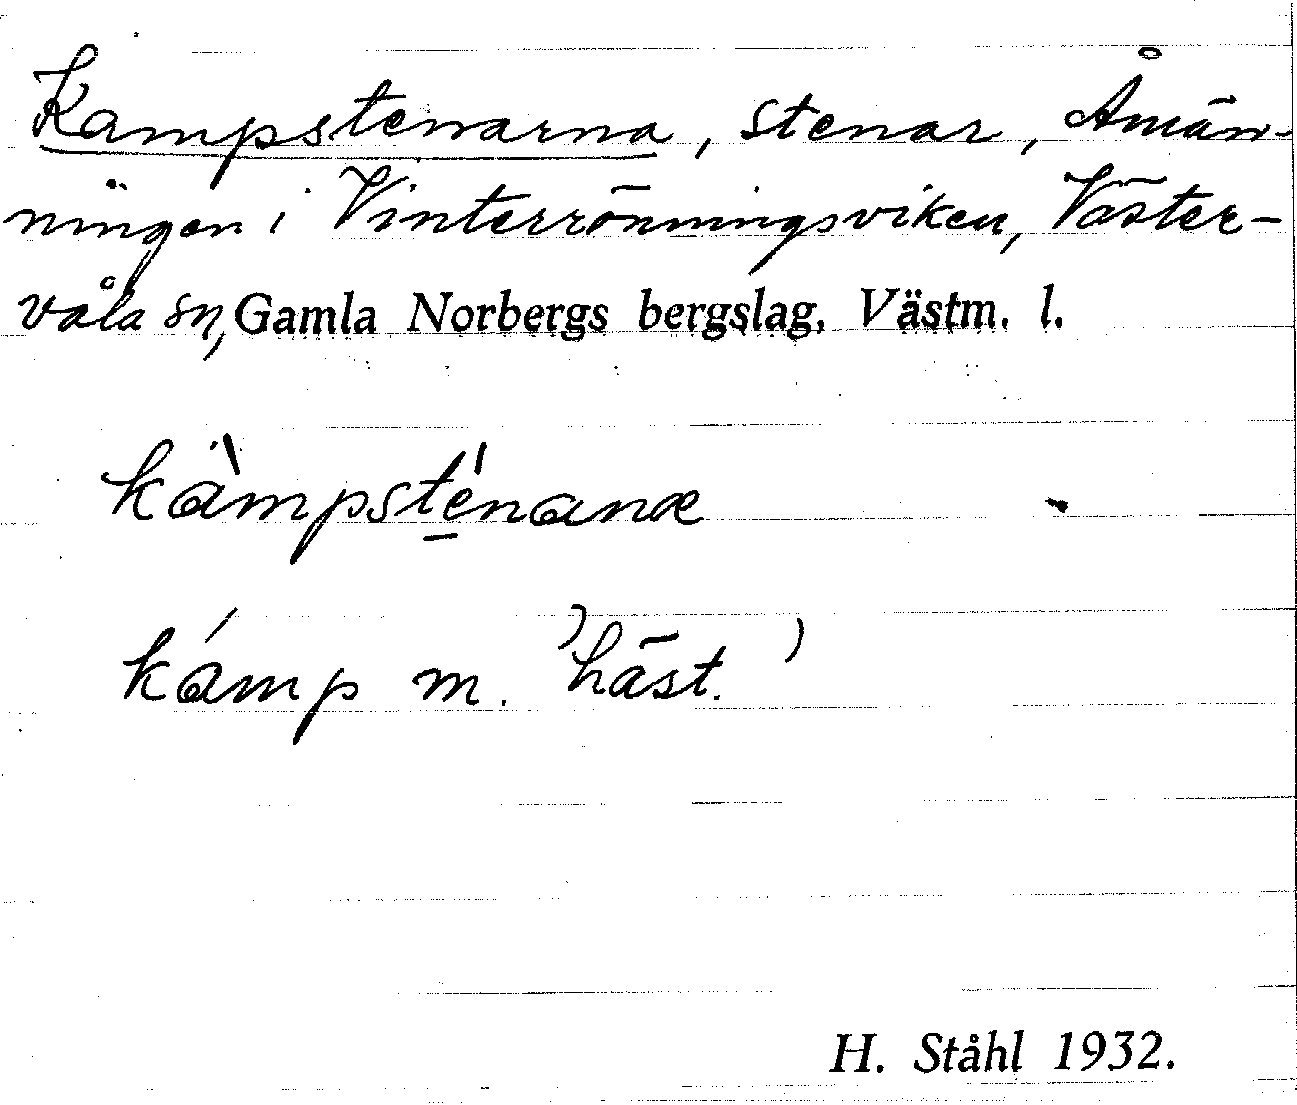 Kampstenarna, stenar, Åmän-
ningen i Vinterröningsviken, Väster-
våla sn, Gamla Norbergs bergslag, Västm. l.
kàmpsténanæ
kámp m. 'häst.'
H. Ståhl 1932.